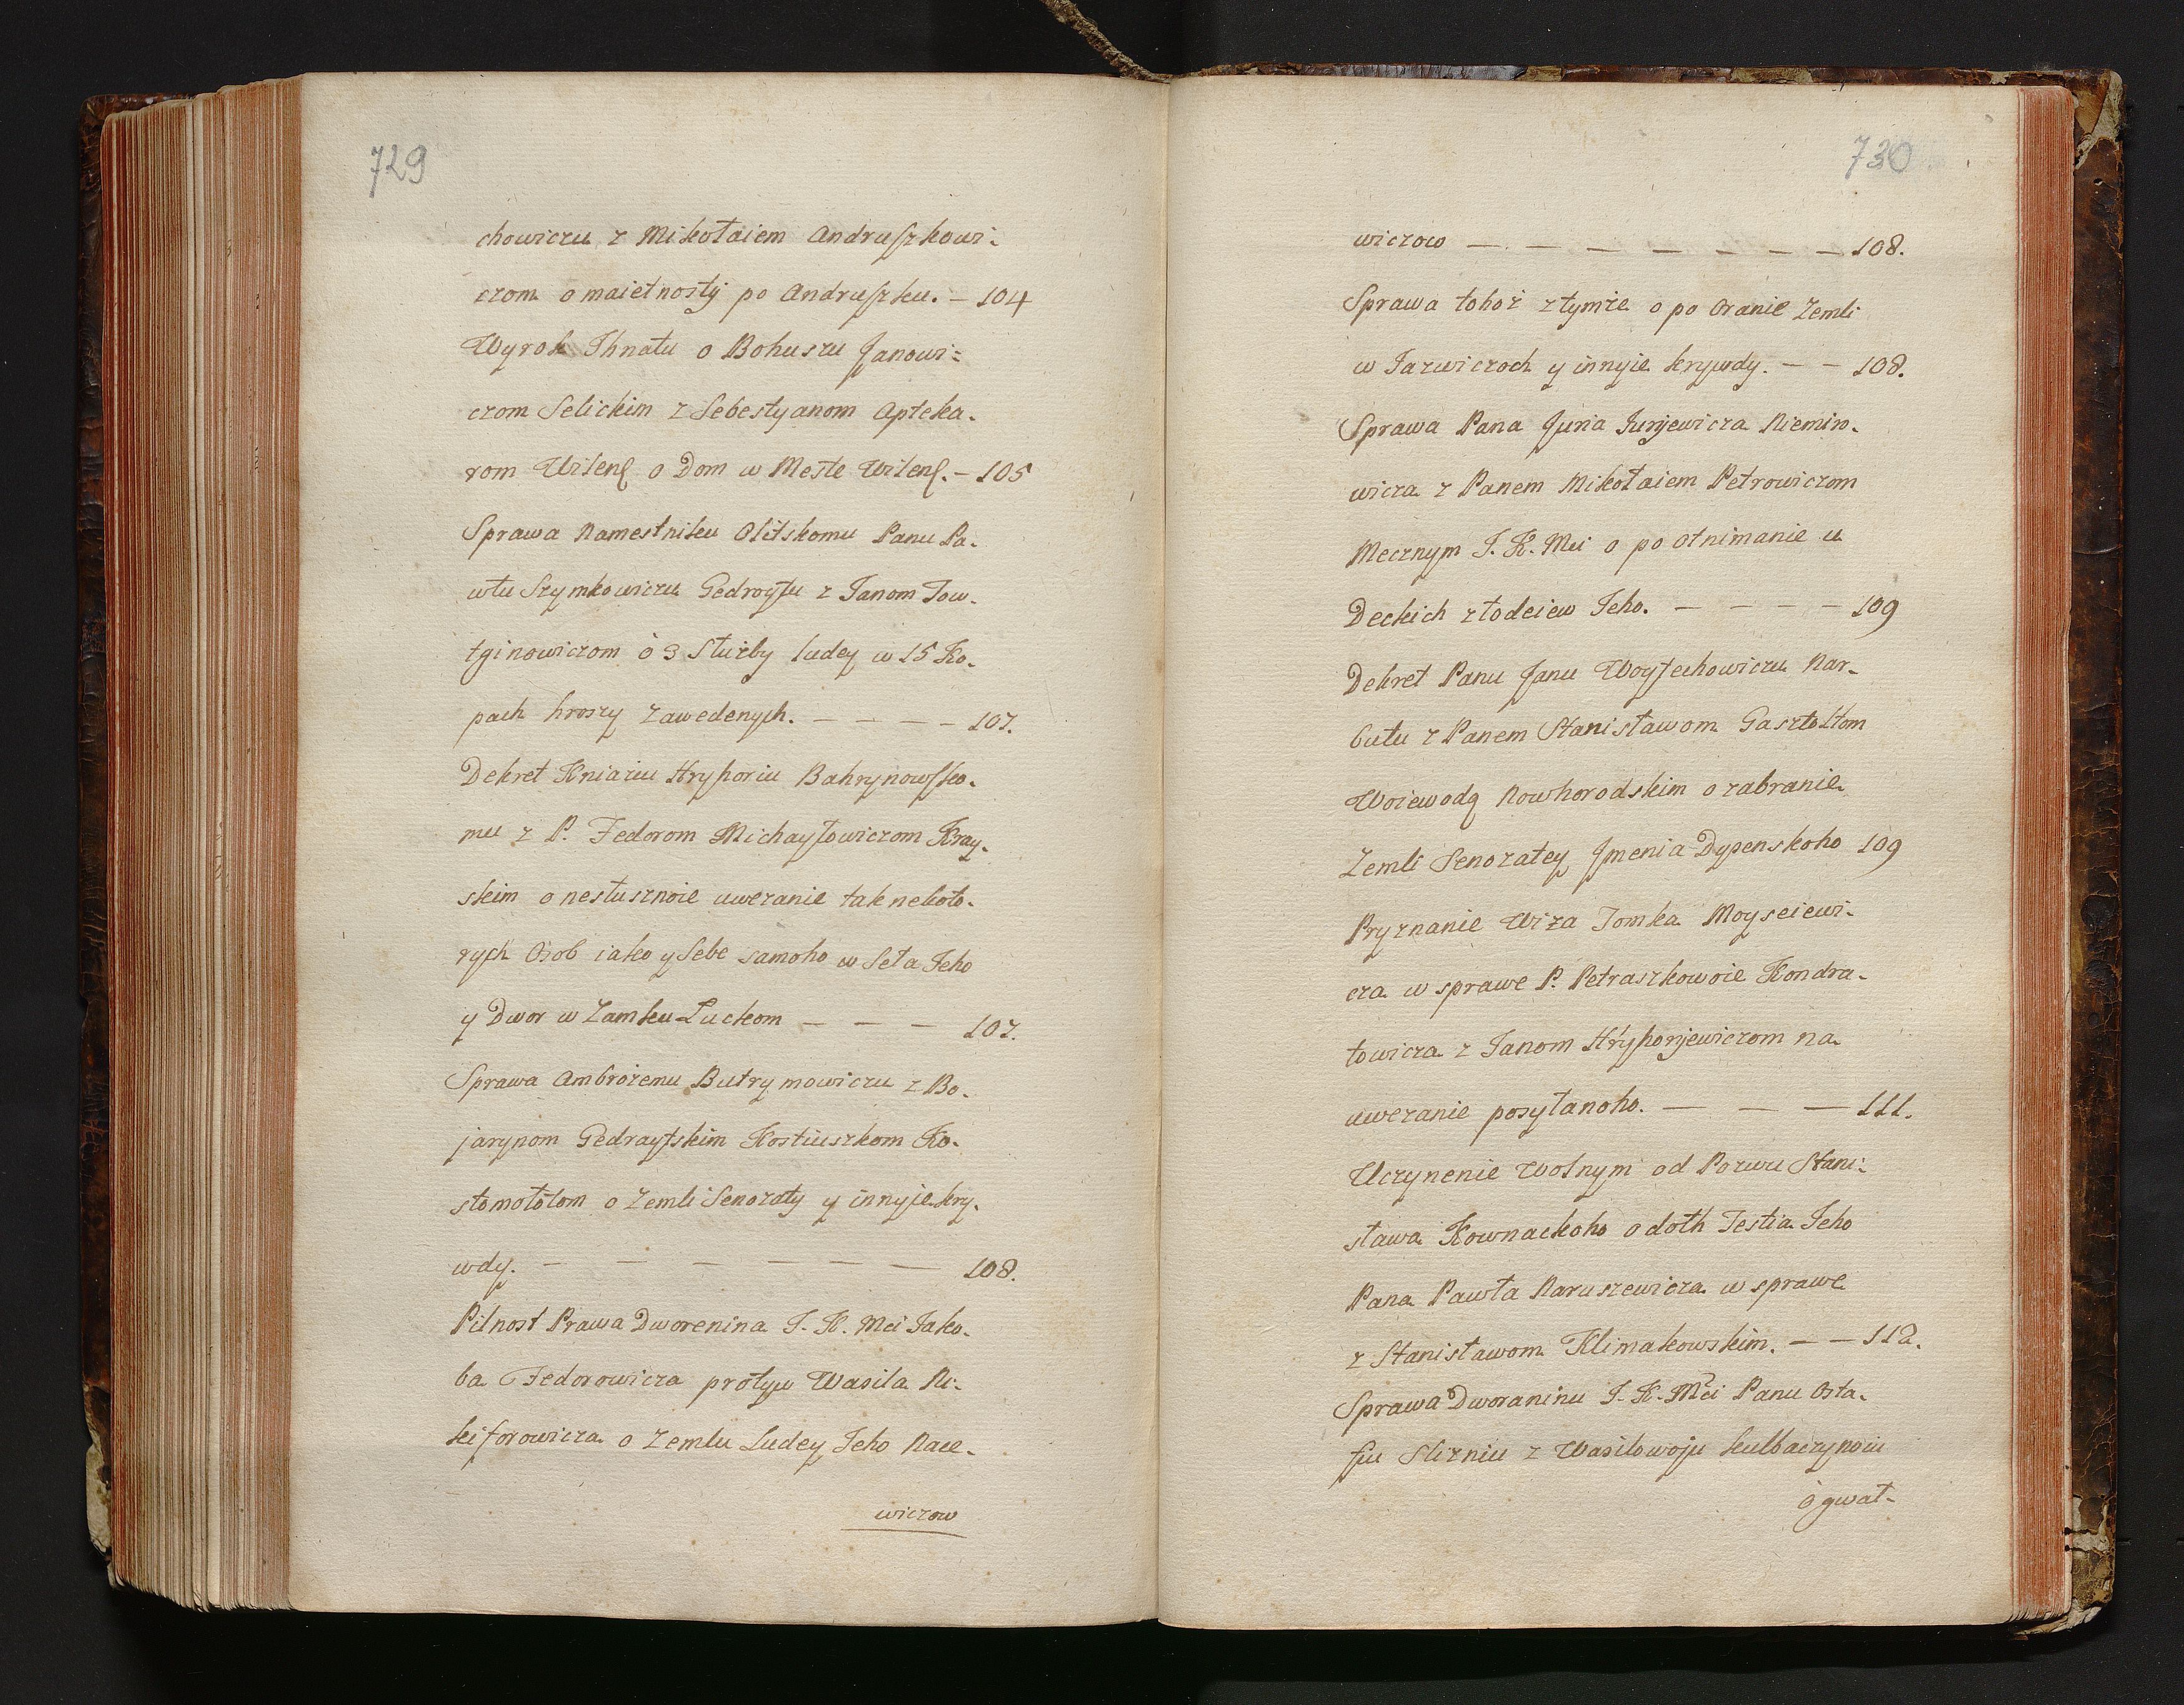 729
chowiczu z Mikołaiem Andruszkowi-
czom o maietnosty po Andruszku. — 104
Wyrok Ihnatu o Bohuszu Janowi=
czom Selickim z Sebestyanom Apteka-
rom Wilens o Dom w Meste Wilens. — 105
Sprawa Namestniku Olitskomu Panu Pa-
włu Szymkowiczu Gedroytu z Janom Tow-
tginowiczom ò 3 Służby ludey w 15 Ko-
pach hroszy zawedenych. — — — — 107.
Dekret Kniaziu Hryhoriu Bahrynowsko-
mu z P. Fedorom Michayłowiczom Kray-
skim o nesłusznoie uwezanie tak nekoto-
rych Osob iako y Sebe samoho w Seła Jeho
y Dwor w Zamku Łuckom — — — 107.
Sprawa Ambrożemu Butrymowiczu z Bo-
jarynom Gedraytskim Kostiuszkom Ko-
stomołotom o Zemli Senozaty y innyie kry-
wdy. — — — — — — 108.
Pilnost Prawa Dworenina J. K. Mci Jako-
ba Fedorowicza protyw Wasila Ni-
kiforowicza o Zemlu Ludey Jeho Nace-
wiczow
730
wiczow — — — — — — — 108.
Sprawa tohoż z tymże o po Oranie Zemli
w Jazwiczoch y innyie krywdy. — — 108.
Sprawa Pana Juria Jurjewicza Niemiro-
wicza z Panem Mikołaiem Petrowiczom
Mecznym J. K. Mci o po otnimanie u
Deckich złodeiew Jeho. — — — — 109
Dekret Panu Janu Woytechowiczu Nar-
butu z Panem Stanisławom Gasztołtom
Woiewodą Nowhorodskim o zabranie
Zemli Senozatey Jmenia Dypenskoho 109
Pryznanie Wiża Tomka Moyseiewi-
cza w sprawe P. Petraszkowoie Kondra-
towicza z Janom Hryhorjewiczom na
uwezanie posyłanoho. — — — 111.
Uczynenie Wolnym od Pozwu Stani-
sława Kownackoho o dołh Testia Jeho
Pana Pawła Naruszewicza w sprawe
z Stanisławom Klimakowskim. — — 112.
Sprawa Dworaninu J. K. Mci Panu Osta-
fiu Slizniu z Wasilowoju Kulbaczynoiu
ò gwał-